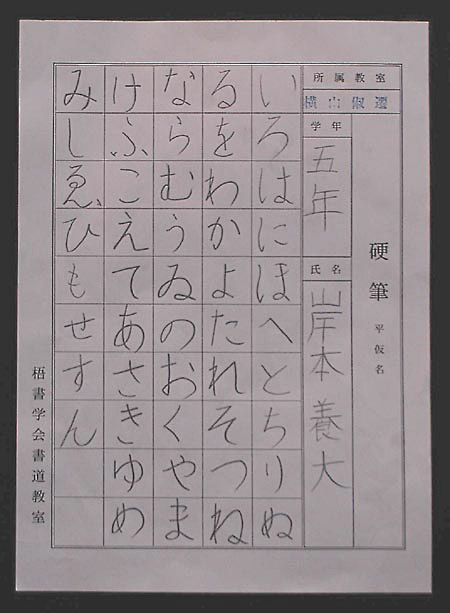 硬筆 平仮名
所属教室
横山
学年
五年
氏名
岸本養大
いろはにほへとちりぬ
るをわかよたれそつね
ならむうゐのおくやま
けふこえてあさきゆめ
みしゑひもせすん
梧書学会書道教室